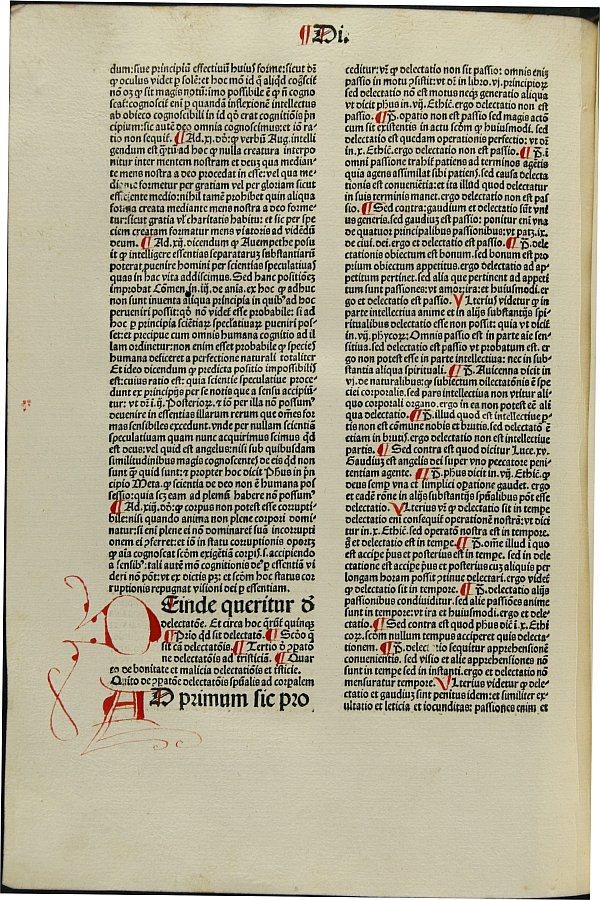 ¶ Di.
dum: siue principiū effectiuū huius forme: sicut dr̄
ꝙ oculus videt ꝑ solē: et hoc mō id q̄ aliqd cogscit
nō oꝫ ꝙ sit magis notū: impossibile ē ꝙ ñ cogno
scat: cognoscit eni ꝑ quandā inflexionē intellectus
ab obiecto cognoscibili in id qd erat cognitiōis prin
cipium: sic autē deo omnia cognoscimus: et iō ra
tio non sequit̄. ¶ Ad .xj. dō: ꝙ verbū Aug. intelli
gendum est ad hoc ꝙ nulla creatura interpo
nitur inter mentem nostram et deuꝫ qua median
te mens nostra a deo procedat in esse: vel qua me
diante formetur per gratiam vel per gloriam sicut
efficiente medio: nihil tamē prohibet quin aliqua
forma creata mediante mens nostra a deo forme
tur: sicut gratia vel charitatis habitu: et sic per spe
ciem creatam formatur mens viatoris ad vidēdū
deum. ¶ Ad .xij. dicendum ꝙ Auempethe posu
it ꝙ intelligere essentias separataruꝫ substantiarū
poterat puenire homini per scientias speculatiuas
quas in hac vita addiscimus. Sed hanc positionēꝫ
improbat Cōmen. in .iij. de anima. ex hoc ꝙ adhuc
non sunt inuenta aliqua principia in quibꝰ ad hoc
perueniri possit: qd non videt̄ esse probabile: si ad
hoc ꝑ principia sciētiaꝝ speculatiuaꝝ pueniri pos
set: et precipue cum omnis humana cognitio ad il
lam ordinetur: non enim esset probabile ꝙ species
humana deficeret a perfectione naturali totaliter
Et ideo dicendum ꝙ predicta positio impossibilis
est: cuius ratio est: quia scientie speculatiue proce
dunt ex principijs per se notis que a sensu accipiū
tur: vt dr̄ i .ij. Posterioꝝ. et iō per illa nō possumꝰ
deuenire in essentias illarum rerum que omēs for
mas sensibiles excedunt. vnde per nullam scientiā
speculatiuam quam nunc acquirimus scimus qd
est deus: vel quid est angelus: nisi sub quibusdam
similitudinibus magis cognoscentes de eis qd non
sunt ꝙ quid sunt: et propter hoc dicit Phus in prin
cipio Meta. ꝙ scientia de deo non ē humana pos
sessio: quia scz eam ad plenū habere nō possumꝰ
¶ Ad .xiij. dō: ꝙ corpus non potest esse corrupti
bile: nisi quando anima non plene corpori domi
natur: si eni plene ei nō dominaret̄ sua incorrupti
onem ei pferret: et iō in statu corruptionis oportꝫ
ꝙ aia cognoscat scōm exigētiā corpis. s. accipiendo
a sensibꝰ: tali autē mō cognitionis de essentia vi
deri nō pōt: vt ex dictis pꝫ: et scōm hoc status cor
ruptionis repugnat visioni dei ꝑ essentiam.
Deinde queritur d̄
delectatōe. Et circa hoc q̄rūt̄ quinqꝫ
¶ Prio qd sit delectatō. ¶ Scdo ꝙ
sit cā delectatōis. ¶ Tertio d̄ ꝯpatō
ne delectatōis ad tristiciā. ¶ Quar
to de bonitate et malicia delectatōis et tristicie.
Quito de ꝯpatōe delectatōis spūalis ad corpalem
AD primum sic pro
ceditur: vr̄ ꝙ delectatio non sit passio: omnis eniꝫ
passio in motu ꝯsistit: vt dr̄ in lib. o. vj. principioꝝ
sed delectatio nō est motus neqꝫ generatio aliqua
vt dicit phus in .vij. Ethic. ergo delectatio non est
passio. ¶ P. opatio non est passio sed magis actio
cum sit existentis in actu scōm ꝙ huiusmodi. sed
delectatio est quedam operationis perfectio: vt dr̄
in .x. Ethic. ergo delectatio non est passio. ¶ P. i
omni passione trahit̄ patiens ad terminos agētis
quia agens assimilat sibi patiens. sed causa delecta
tionis est conueniētia: et ita illud quod delectatur
in suis terminis manet. ergo delectatio non est pas
sio. ¶ Sed contra: gaudium et delectatio sūt vni
us generis. sed gaudiuꝫ est passio: ponitur eni vna
de quatuor principalibus passionibus: vt patꝫ .ix.
de ciui. dei. ergo et delectatio est passio. ¶ P. dele
ctationis obiectum est bonum. sed bonum est pro
prium obiectum appetitus. ergo delectatio ad ap
petitum pertinet. sed alia que pertinent ad appeti
tum sunt passiones: vt amor: ira: et huiusmodi. er
go et delectatio est passio. Vlterius videtur ꝙ in
parte intellectiua anime et in alijs substantijs spi
ritualibus delectatio esse non possit: quia vt dicit̄
in .vij. phycoꝝ: Omnis passio est in parte aīe sen
sitiua. sed delectatio est passio vt probatum est. er
go non potest esse in parte intellectiua: nec in sub
stantia aliqua spirituali. ¶ P. Auicenna dicit in
vj. de naturalibus: ꝙ subiectum dilectatōnis ē spe
ciei corporalis. sed pars intellectiua non vtitur ali
quo corporali organo. ergo in ea non potest eē ali
qua delectatio. ¶ P. illud quod est intellectiue ꝑ
tis non est cōmune nobis et brutis. sed delectatō ē
etiam in brutis. ergo delectatio non est intellectiue
partis. ¶ Sed contra est quod dicitur Luce. xv.
Gaudiuꝫ est angelis dei super vno peccatore peni
tentiam agente. ¶ P. phus dicit in .vij. Ethic. ꝙ
deus semp vna et simplici opatione gaudet. ergo
et eadē rōne in alijs substantijs spūalibus pōt esse
delectatio. Vlterius vr̄ ꝙ delectatio sit in tempe
delectatio eni consequit̄ operationē nostrā: vt dici
tur in .x. Ethic. sed operatō nostra est in tempore.
g̊ et delectatio est in tempe ¶ P. ome illud i quo
est accipe pus et posterius est in tempe. sed in dele
ctatione est accipe pus et posterius cuꝫ aliquis per
longam horam possit ꝯtinue delectari. ergo videt̄
ꝙ delectatio sit in tempore. ¶ P. delectatio alijs
passionibus condiuiditur. sed alie passiōes anime
sunt in tempore: vt ira et huiusmodi. ergo et dele
ctatio. ¶ Sed contra est quod phus dic̄ i .x. Ethi
coꝝ. scōm nullum tempus acciperet quis delecta
tionem. ¶ P. delectatio sequitur apprehensionē
conuenientis. sed visio et alie apprehensiones nō
sunt in tempe sed in instanti. ergo et delectatio nō
mensuratur tempore. Vlterius videtur ꝙ dele
ctatio et gaudiuꝫ sint penitus idem: et similiter ex
ultatio et leticia et iocunditas: passiones enim et